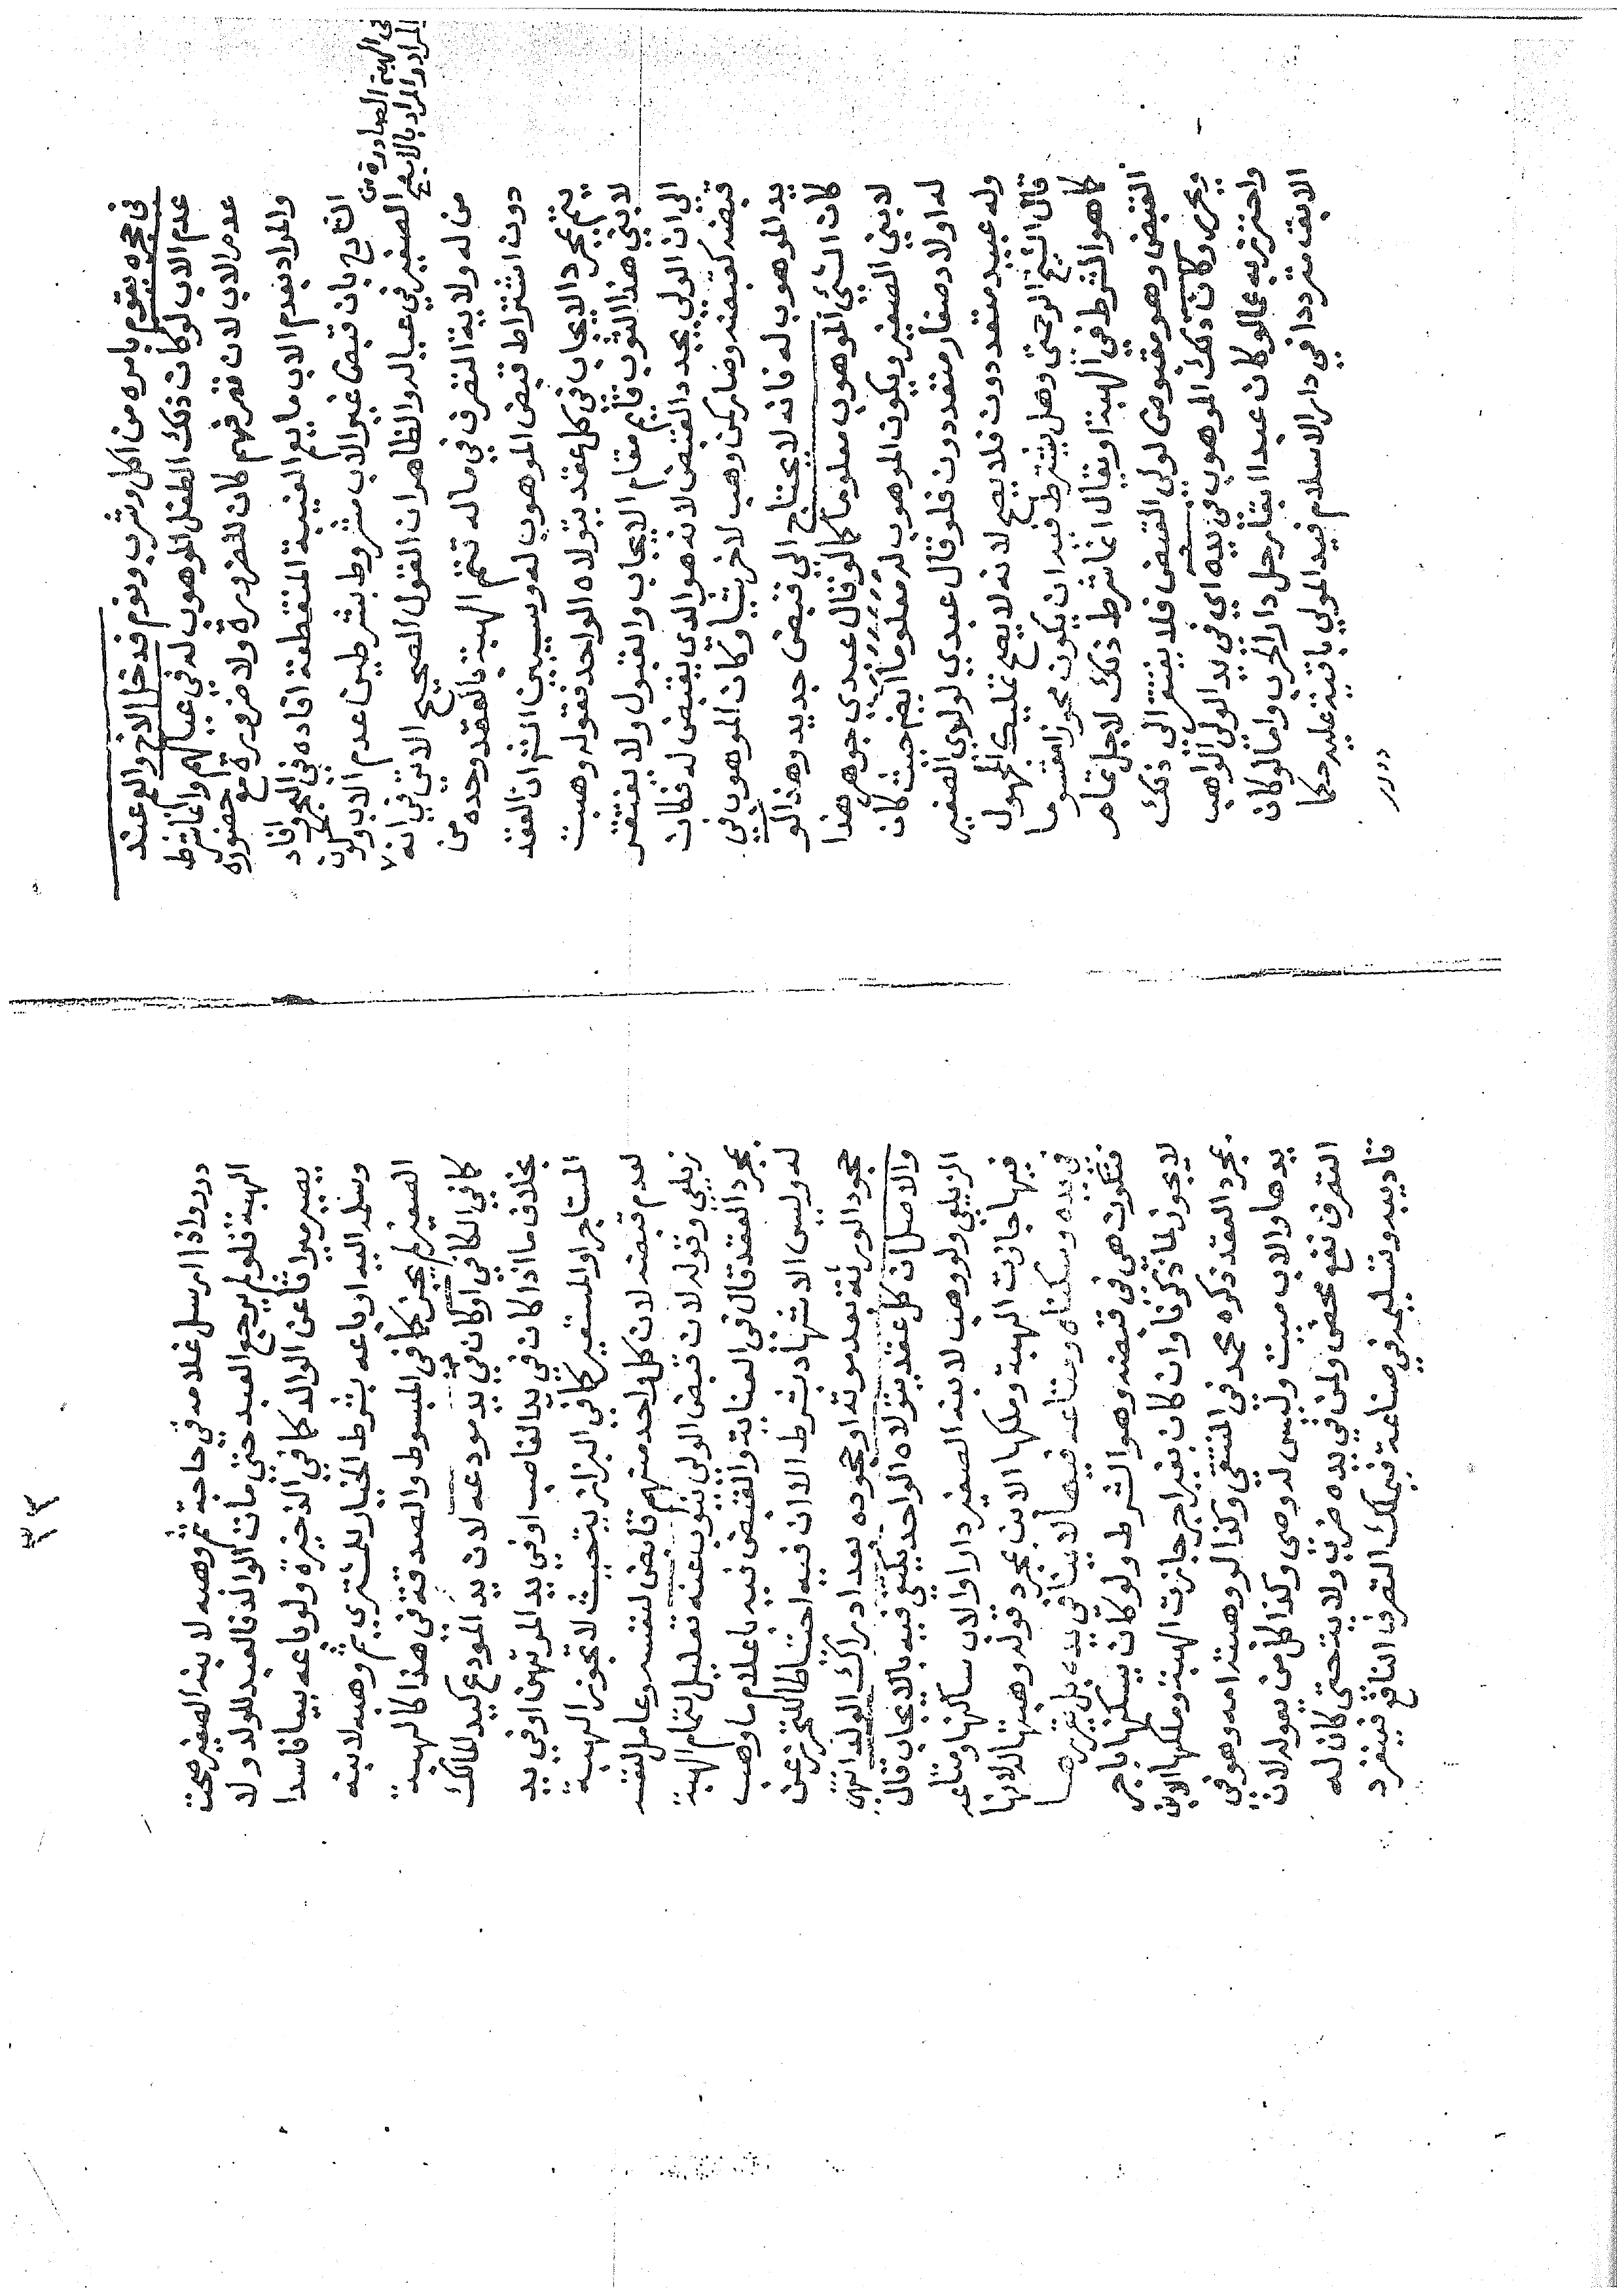 في حجره يقوم بامره من اكل وشرب ونوم فدخل الاخ والعم عند
عدم الاب لو كان ذلك الطفل الموهوب له في عيالهم وانما شرط
عدم الاب لان تصرفهم كان للضرورة ولا ضرورة مع حضوره
والمراد بعدم الاب ما يعم الغيبة المنقطعة افاده في البحر وافاد
الشارح بان قبض غير الاب مشروط بشرطين عدم الاب وكون
الصغير في عياله والظاهر ان القول الصحيح الاتي في انه لا
في الهبة الصادرة من
المراد والمراد بالاب
من له ولاية التصرف في ماله تتم الهبة بالعقد وحده من
دون اشتراط قبض الموهوب له وسيبين الشم ان العقد
يتم بمجرد الايجاب في كل عقد يتولاه الواحد فقوله وهبت
لابني هذا الثوب قايم مقام الايجاب والقبول ولا يفتقر
الى ان الولي يجدد القبض لانه هو الذي يقبض له فكان
قبضه كقبضه وصار كمن وهب لاخر شيا وكان الموهوب في
يد الموهوب له فانه لا يحتاج الى قبض جديد وهذا لو
كان الشئ الموهوب معلوما كما لو قال عبدي جوهر هذا
لابني الصغير ويكون الموهوب له معلوما ايضا حيث كان
له اولاد صغار متعددون فلو قال عبدي لولدي الصغير
وله عبيد متعددون فلا يصح لانه لا يصح تمليك المجهول
قال الشيخ الرحمتي وهل يشترط فيه ان يكون محوزا مقسوما
كما هو الشرط في الهبة او يقال انما شرط ذلك لاجل تمام
القبض وهو مقبوض لولي القبض فلا يفتقر الى ذلك
ويحرر وكان ذلك الموهوب في يده اي في يد الولي الواهب
واحترز به عما لو كان عبدا ابقا رحل دار الحرب واما لو كان
الابق مترددا في دار الاسلام فيد المولى باقية عليه حكما
درر
٣٣
درر واذا ارسل غلامه في حاجة ثم وهبه لابنه الصغير صحت
الهبة فلو لم يرجع العبد حتى مات الوالد فالعبد للولد ولا
يصير ميراثا عن الوالد كما في الذخيرة ولو باعه بيعا فاسدا
وسلمه اليه او باعه بشرط الخيار للمشتري ثم وهبه لابنه
الصغير لم يجز كما في المبسوط والصدقة في هذا كالهبة
كما في الكافي او كان في يد مودعه لان يد المودع كيد المالك
بخلاف ما اذا كان في يد الغاصب او في يد المرتهن او في يد
المستاجر او المستعير كما في البزازية حيث لا تجوز الهبة
لعدم قبضه لان كل واحد منهم قابض لنفسه وعامل لنفسه
زيلعي وقوله لان قبض الولي ينوب عنه تعليل لتمام الهبة
بمجرد العقد قال في العناية والقبض فيه باعلام ما وهب
له وليس الاشهاد بشرط الا ان فيه احتياطا للتحرز عن
جحود الورثة بعد موته او جحوده بعد ادراك الولد انتهى
والاصل ان كل عقد يتولاه الواحد يكتفي فيه بالايجاب قال
الزيلعي ولو وهب لابنه الصغير دارا والاب ساكنها ومتاعه
فيها جازت الهبة وملكها الابن بمجرد قوله وهبتها له لانها
في يده وسكناه ومتاعه فيها لا ينافي يده بل يقررها
فتكون هي في قبضه وهو الشرط ولو كان يسكنها باجر
لا يجوز لما ذكرنا وان كان بغير اجر جازت الهبة وملكها الابن
بمجرد العقد ذكره محمد في المنتقى وكذا لو وهبته امه وهو في
يدها والاب ميت وليس له وصي وكذا كل من يعوله لان
التصرف نفع محض ولمن في يده ضرب ولاية حتى كان له
تاديبه وتسليمه في صناعة فيملك التصرف النافع فينفرد